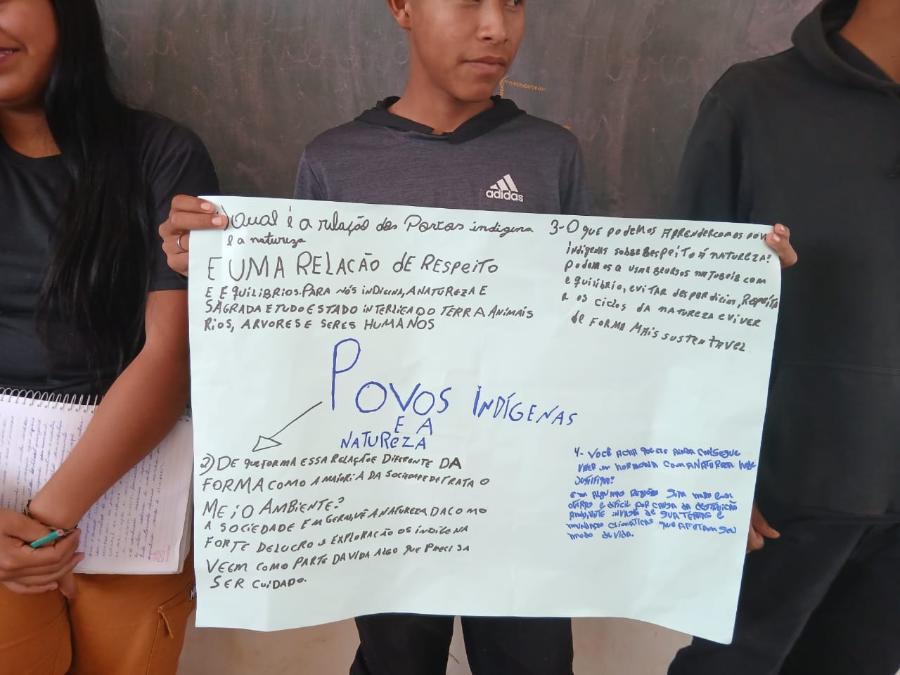 adidas
1) Qual é a relação dos Povos indigena
e a natureza
E UMA RELAÇÃO DE RESPEITO
E EQUILIBRIOS. PARA NÓS INDIGINA, A NATUREZA E
SAGRADA E TUDO ESTADO INTERLIGADO TERRA ANIMAIS
RIOS, ARVORES E SERES HUMANOS
3-O que podemos APRENDER com os pov
indigenas sobre RESPEITO A NATUREZA?
Podemos a usar recursos naturais com
equilibrio, evitar desperdicios, Respeita
r os ciclos da natureza e viver
de forma mais sustentavel
POVOS INDÍGENAS
E A
NATUREZA
2) DE que forma ESSA RELAÇÃO E DIFERENTE DA
FORMA COMO A MAIORIA DA SOCIEDADE TRATA O
MEIO AMBIENTE?
A SOCIEDADE EM GERAL VÊ A NATUREZA COMO
FORTE DE LUCRO E EXPLORAÇÃO OS INDIGENA
VEEM COMO PARTE DA VIDA ALGO QUE PRECISA
SER CUIDADO.
4- Você acha que ainda consegue
viver em harmonia com a natureza hoje
Justifica?
Em algumas regiões sim mas em
outras e dificil por causa da destruição
invasão de suas terras e
mudanças climaticas que afetam seu
modo de vida.